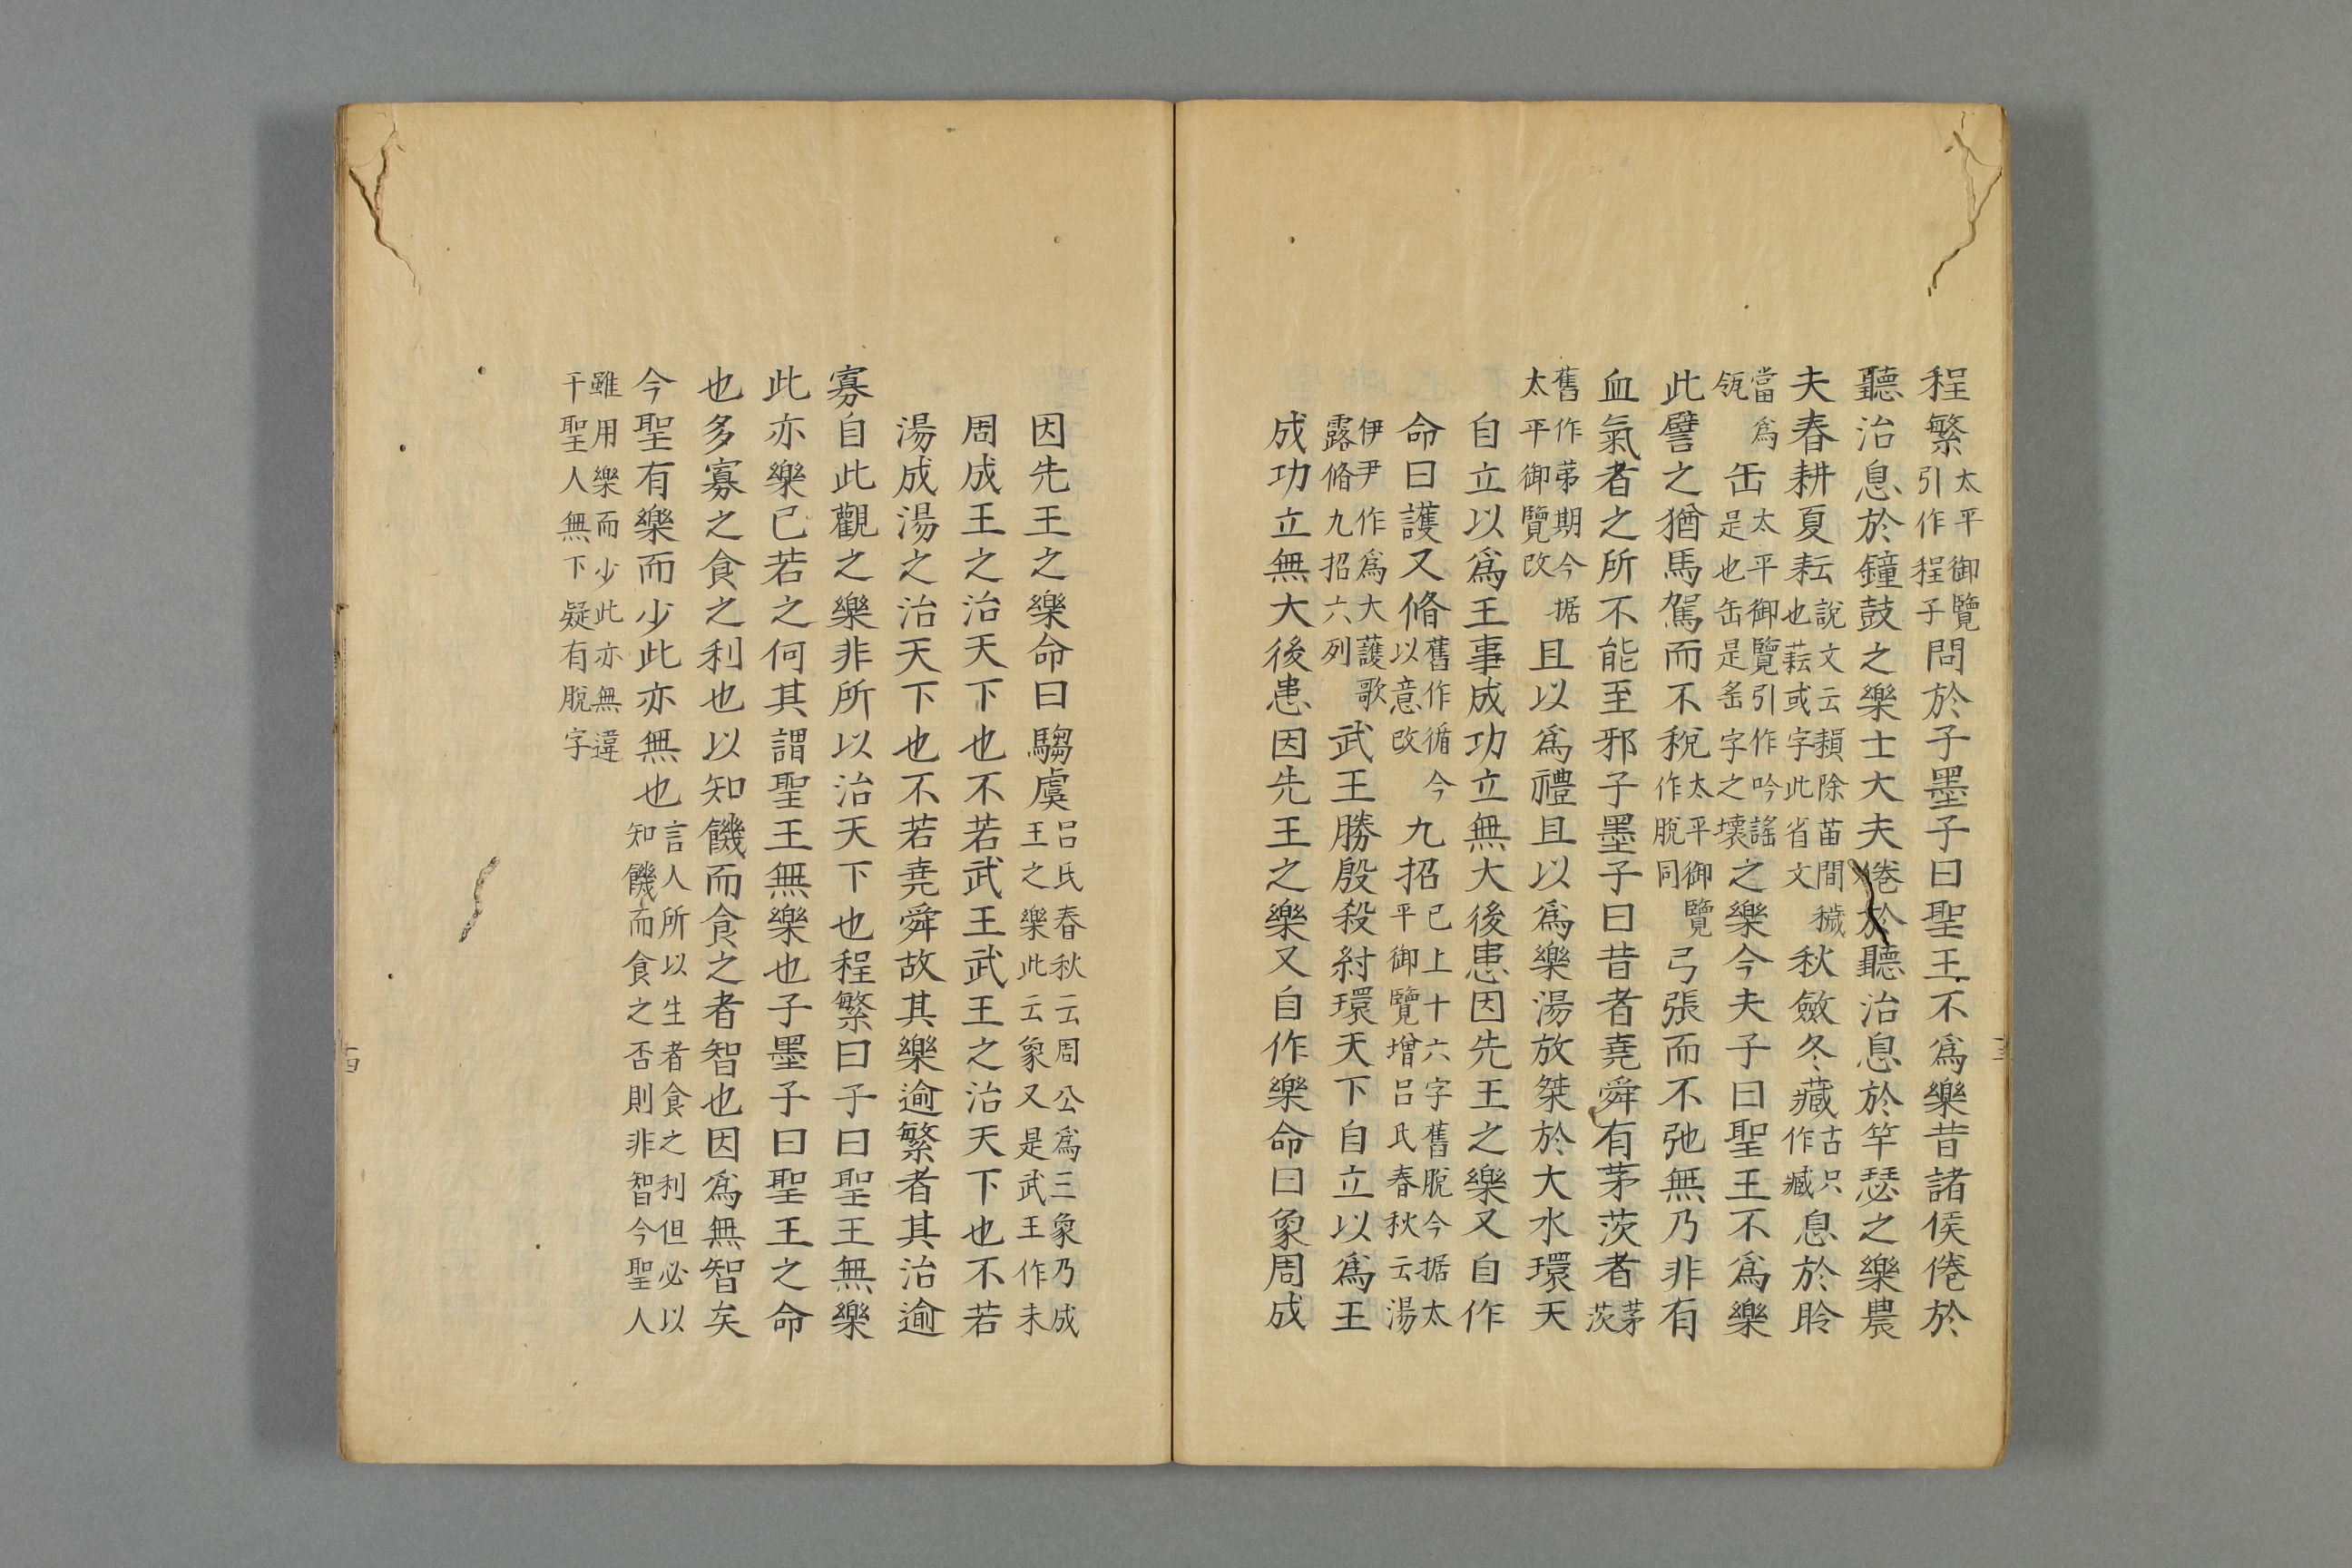 程繁太平御覽引作程子問於子墨子曰聖王不爲樂昔諸侯倦於
聽治息於鐘鼓之樂士大夫倦於聽治息於竽瑟之樂農
夫春耕夏耘說文云除苗間穢也或字此省文秋斂冬藏古只作臧息於聆
當爲瓴缶太平御覽引作吟謠是也缶是䍃字之壞之樂今夫子曰聖王不爲樂
此譬之猶馬駕而不稅太平御覽作脫同弓張而不弛無乃非有
血氣者之所不能至邪子墨子曰昔者堯舜有茅茨者茅茨
舊作苐期今据太平御覽改且以爲禮且以爲樂湯放桀於大水環天
自立以爲王事成功立無大後患因先王之樂又自作
命曰護又脩舊作循今以意改九招已上十六字舊脫今据太平御覽增呂氏春秋云湯
伊尹作爲大護歌露脩九招六列武王勝殷殺紂環天下自立以爲王
成功立無大後患因先王之樂又自作樂命曰象周成
因先王之樂命曰騶虞呂氏春秋云周公爲三象乃成王之樂此云象又是武王作未
周成王之治天下也不若武王武王之治天下也不若
湯成湯之治天下也不若堯舜故其樂逾繁者其治逾
寡自此觀之樂非所以治天下也程繁曰子曰聖王無樂
此亦樂已若之何其謂聖王無樂也子墨子曰聖王之命
也多寡之食之利也以知饑而食之者智也因爲無智矣
今聖有樂而少此亦無也言人所以生者食之利但必以知饑而食之否則非智今聖人
雖用樂而少此亦無違干聖人無下疑有脫字
十四